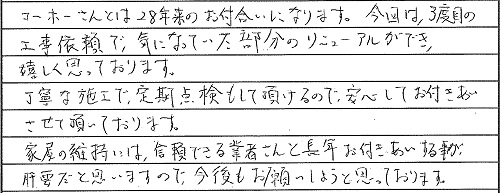 コーホーさんとは28年来のお付合いになります。今回は、3度目の
工事依頼で、気になっていた部分のリニューアルができ、
嬉しく思っております。
丁寧な施工で、定期点検もして頂けるので、安心してお付きあい
させて頂いております。
家屋の維持には、信頼できる業者さんと長年お付きあいする事が
肝要だと思いますので、今後もお願いしようと思っております。